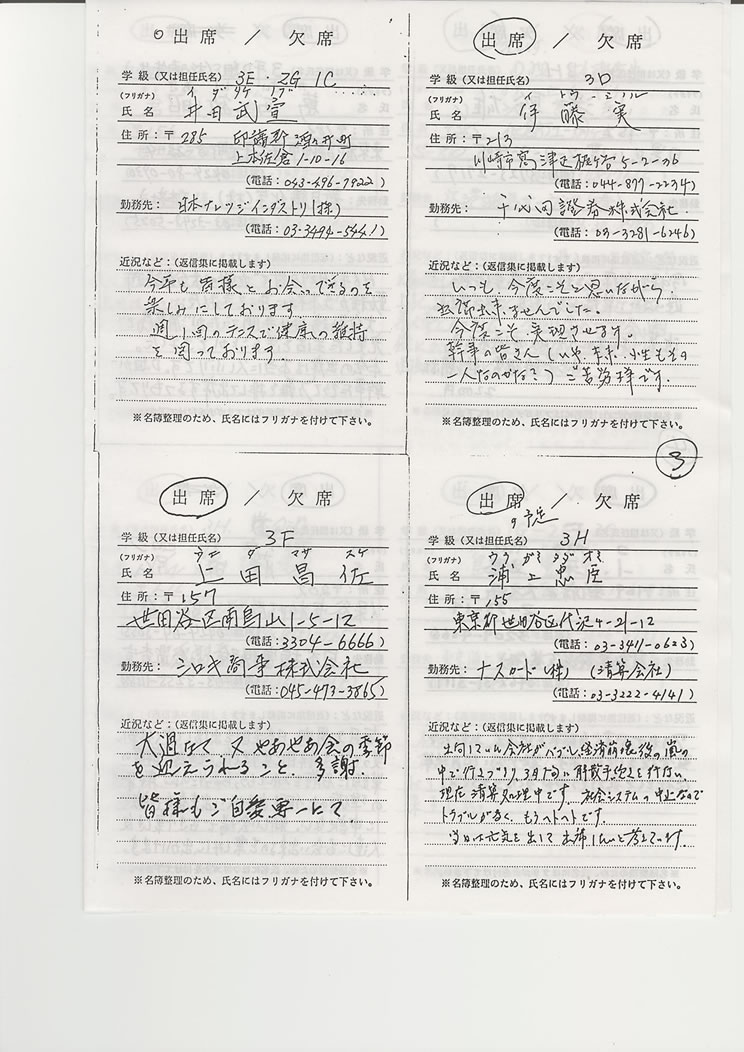 ○出席 / 欠席
学級（又は担任氏名） 3E・2G 1C
(フリガナ) イ ダ タケ ノブ
氏名 井田武宣
住所：〒285 印旛郡酒々井町
上本佐倉1-10-16
(電話：043-496-7922)
勤務先：日本ナレッジインダストリ(株)
(電話：03-3494-5441)
近況など：(返信集に掲載します)
今年も皆様とお会いできるのを
楽しみにしております
週1回のテニスで健康の維持
を図っております.
※名簿整理のため、氏名にはフリガナを付けて下さい。
出席 / 欠席
学級（又は担任氏名） 3D
(フリガナ) イ トウ ミノル
氏名 伊藤 実
住所：〒213
川崎市高津区梶ケ谷5-2-36
(電話：044-877-2234)
勤務先：千代田證券株式会社
(電話：03-3281-6246)
近況など：(返信集に掲載します)
いつも、今度こそと思いながら、
出来ませんでした。
今度こそ実現させます。
幹事の皆さん(いや、小生もその
一人なのかな？)ご苦労様です。
※名簿整理のため、氏名にはフリガナを付けて下さい。
3
出席 / 欠席
学級（又は担任氏名） 3F
(フリガナ) ウエ ダ マサ スケ
氏名 上田昌佐
住所：〒157
世田谷区南烏山1-5-12
(電話：3304-6666)
勤務先：シロキ商事株式会社
(電話：045-473-3865)
近況など：(返信集に掲載します)
大過なく 又 やあやあ会の季節
を迎えられること、多謝.
皆様もご自愛専一にて.
※名簿整理のため、氏名にはフリガナを付けて下さい。
出席 / 欠席
の予定
学級（又は担任氏名） 3H
(フリガナ) ウラ ガミ タダ オミ
氏名 浦上忠臣
住所：〒155
東京都世田谷区代沢4-21-12
(電話：03-3411-0623)
勤務先：ナスカード(株) (清算会社)
(電話：03-3222-4141)
近況など：(返信集に掲載します)
出向していた会社がバブル経済崩壊後の嵐の
中で行きづまり、3月1日に解散手続きを行い、
現在清算処理中です。社会システムの中止なので
トラブルが多く、もうヘトヘトです。
当日は元気を出して出席したいと考えています。
※名簿整理のため、氏名にはフリガナを付けて下さい。